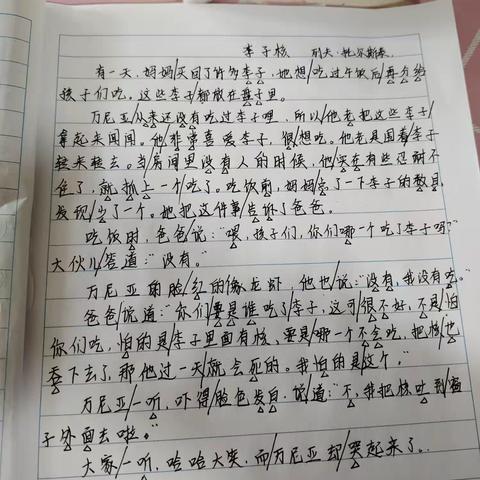 李子核 列夫·托尔斯泰
有一天，妈妈/买回了许多李子，她想/吃过午饭后/再分给
孩子们吃。这些李子/都放在盘子里。
万尼亚/从来还没有吃过李子哩，所以/他老把这些李子/
拿起来闻闻。他/非常喜爱李子，很想吃。他老是围着/李子
转来转去。当/房间里没有人的时候，他/实在有些忍耐不
住了，就/抓上一个/吃了。吃饭前，妈妈/点了一下李子的数目，
发现/少了一个。她把这件事/告诉了爸爸。
吃饭时，爸爸/说：“喂，孩子们，你们/哪一个吃了李子吗？”
大伙儿/答道：“没有。”
万尼亚的脸/红的像龙虾，他也/说：“没有，我没有吃。”
爸爸/说道：“你们/要是谁吃了/李子，这可/很不好，不是/怕
你们吃，怕的是/李子里面有核、要是/哪一个不会吃，把核/也
吞下去了，那他过一天/就会死的。我怕的是这个。”
万尼亚/一听，吓得/脸色发白，说道：“不，我把核吐到/窗
子外面去啦。”
大家/一听，哈哈大笑，而/万尼亚却/哭起来了。